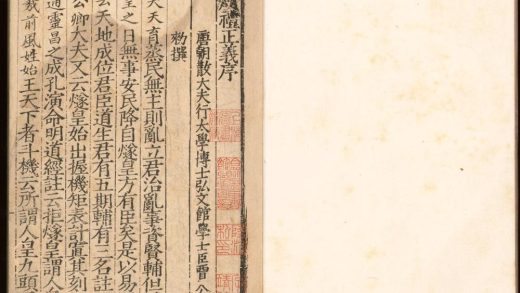 禮正義序
唐朝散大夫行太學博士弘文館學士臣賈公
勑撰
夫天育蒸民無主則亂立君治亂事資賢輔但
皇之日無事安民降自燧皇方有臣矣是以易
云天地成位君臣道生君有五期輔有三名註
公卿大夫又云燧皇始出握機矩表計寘其刻
通靈昌之成孔演命明道經註云拒燧皇謂人
前風姓始王天下者斗機云所謂人皇九頭